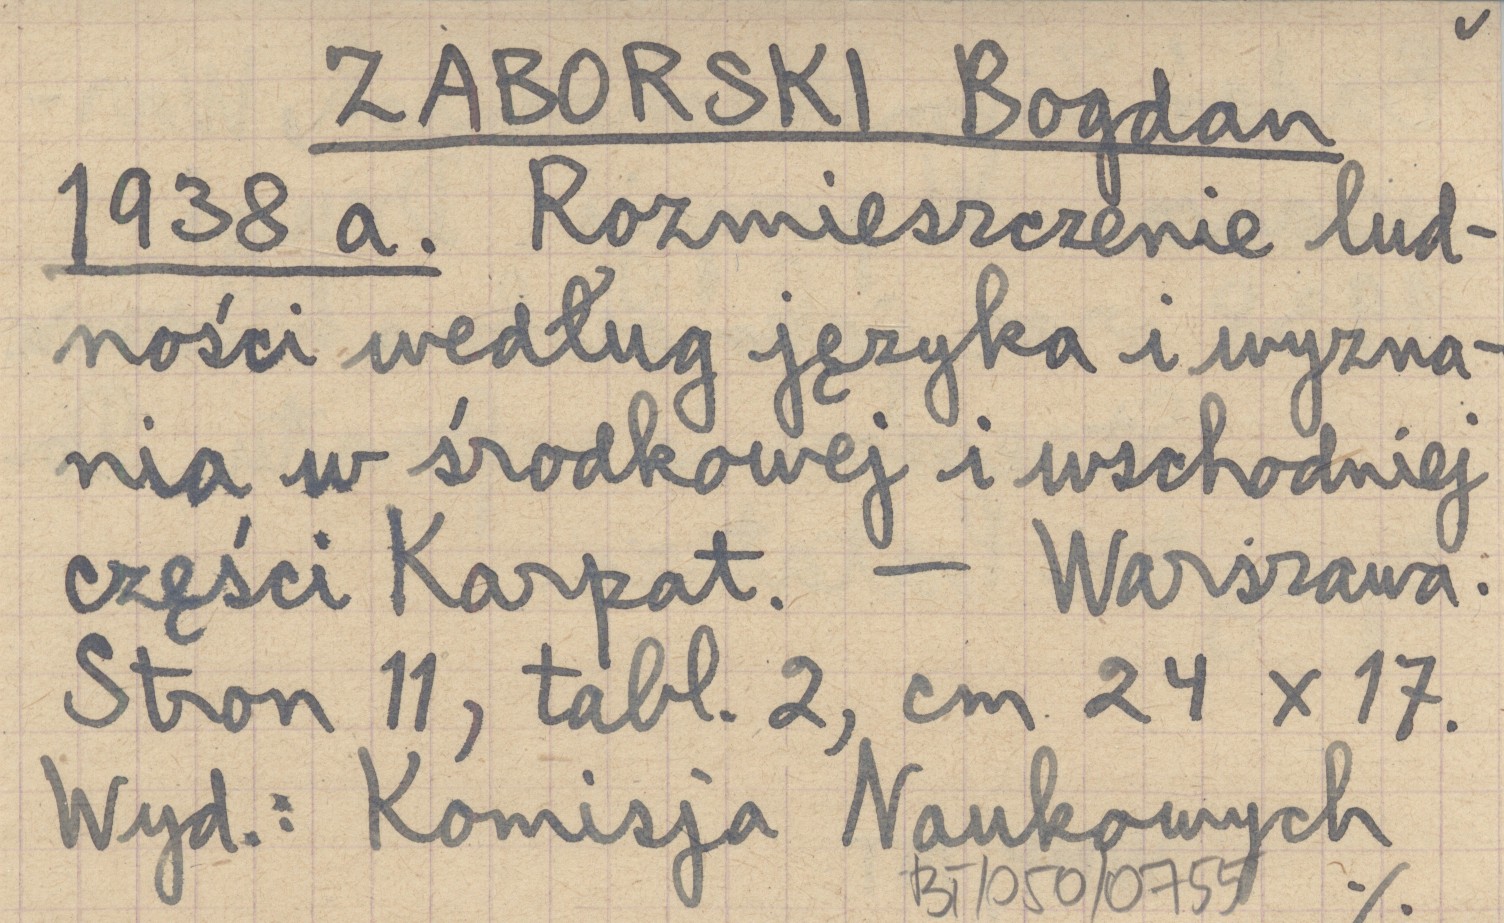 ZABORSKI Bogdan
1938 a. Rozmieszczenie lud-
ności według języka i wyzna-
nia w środkowej i wschodniej
części Karpat. — Warszawa.
Stron 11, tabl. 2, cm 24 x 17.
Wyd.: Komisja Naukowych
BT/050/0755 ./.